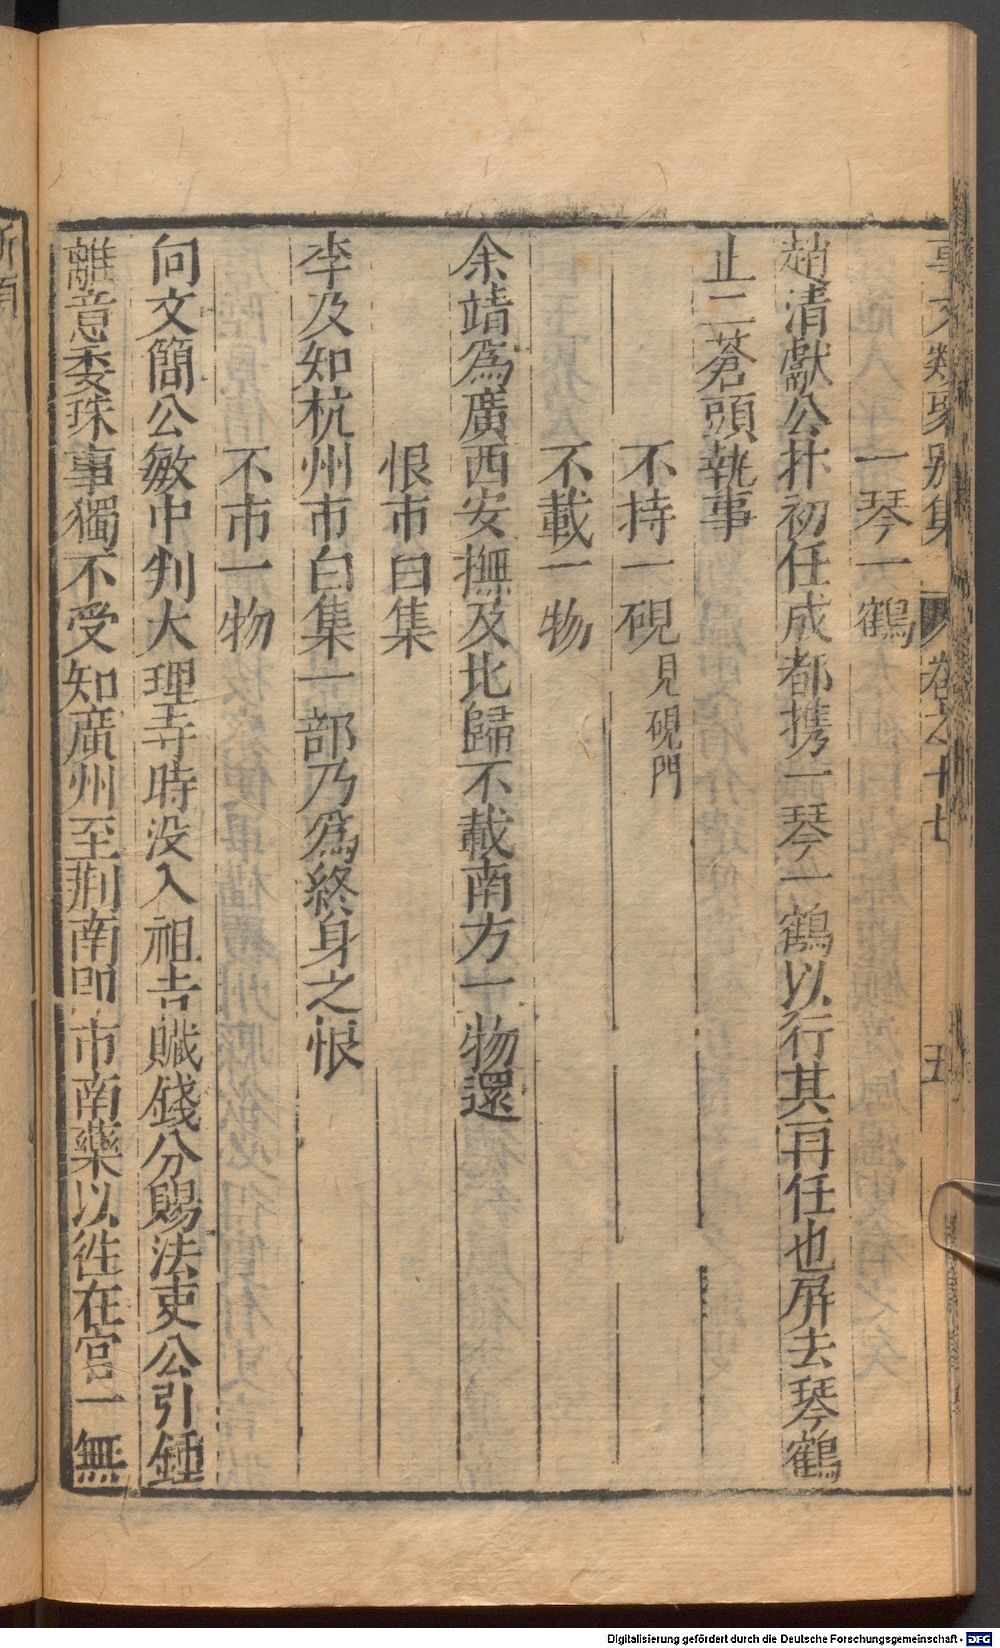 事文類聚别集 卷之十七 五
一琴一鶴
趙清獻公抃初任成都携一琴一鶴以行其再任也屏去琴鶴
止二蒼頭執事
不持一硯見硯門
不載一物
余靖爲廣西安撫及比歸不載南方一物還
恨市白集
李及知杭州市白集一部乃爲終身之恨
不市一物
向文簡公敏中判大理寺時没入祖吉贓錢分賜法吏公引鍾
離意委珠事獨不受知廣州至荆南即市南藥以徃在官一無
Digitalisierung gefördert durch die Deutsche Forschungsgemeinschaft - DFG